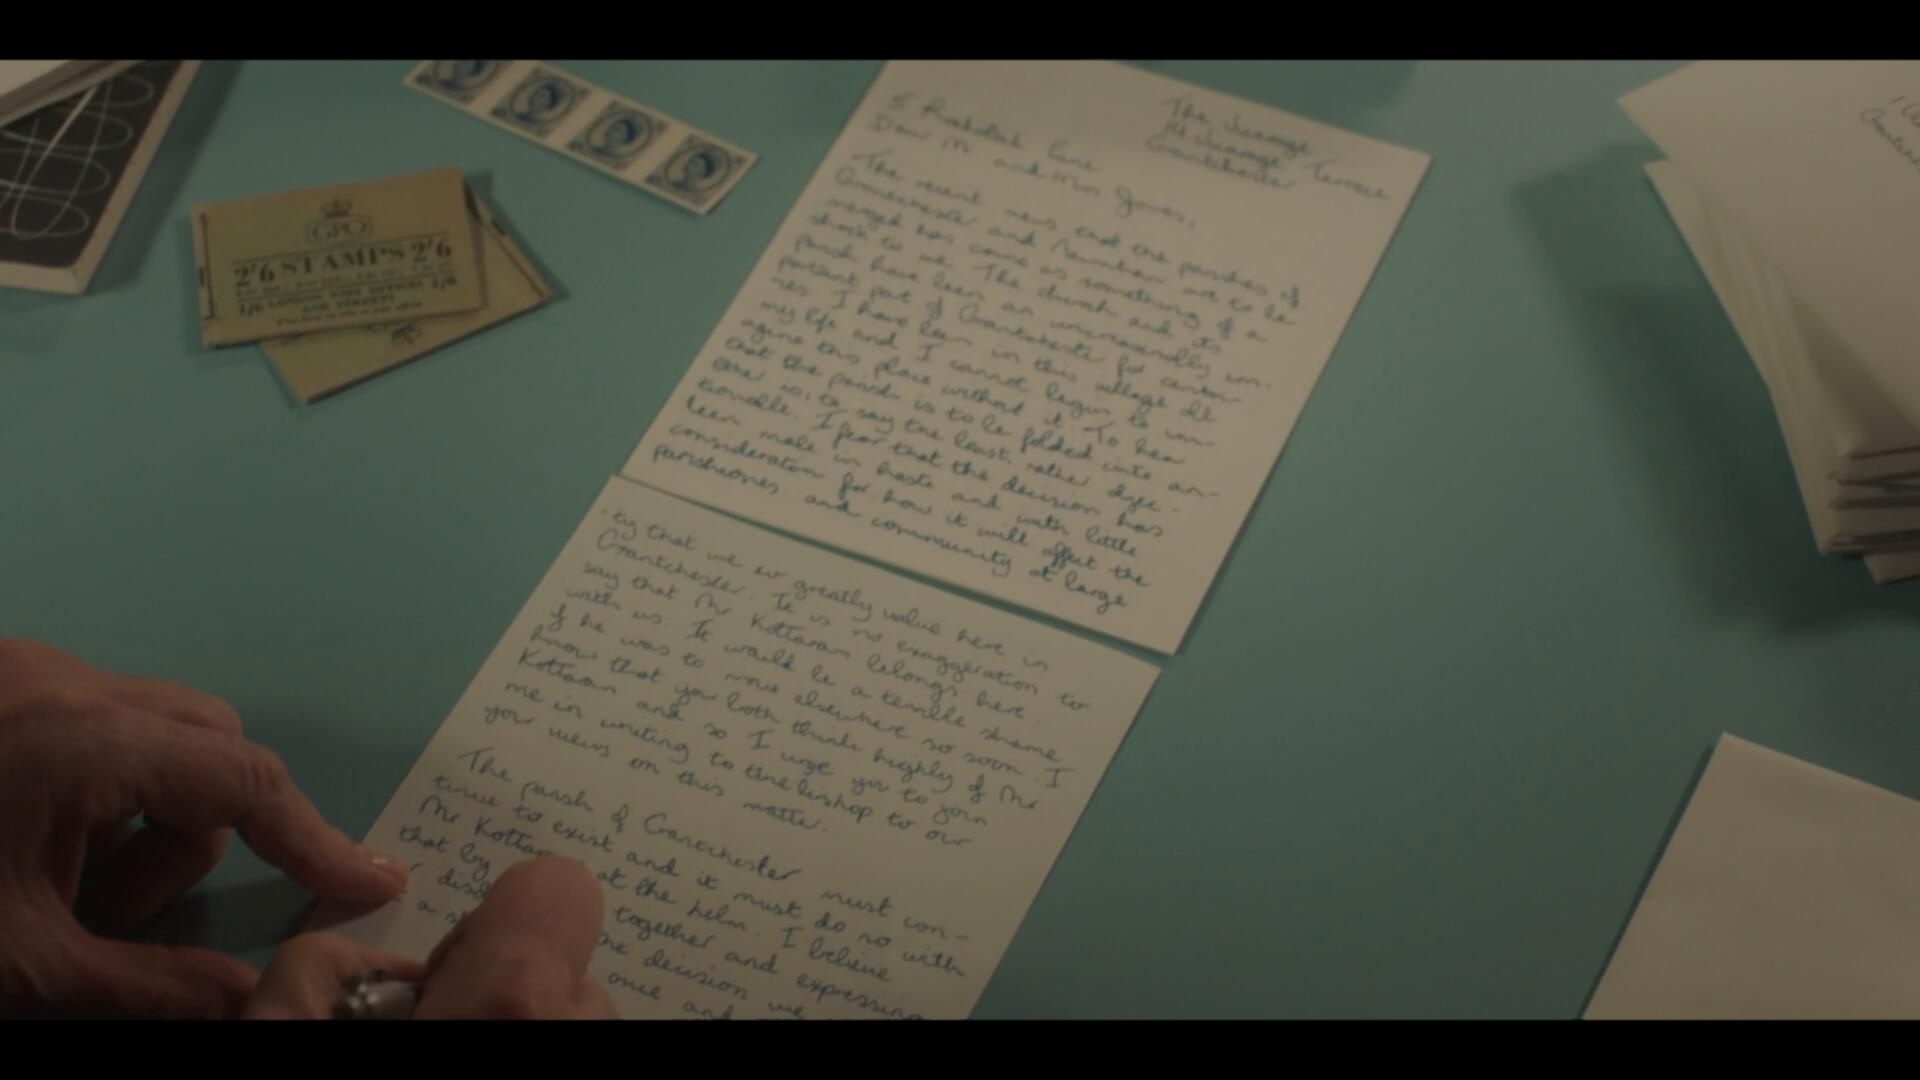 GPO
2'6 STAMPS 2'6
1/6 LONDON POST OFFICES 1/6
AND STREETS
The Vicarage
14 Vicarage Terrace
Grantchester
5 Lane
Dear Mr and Mrs Jones,
The recent news that the parishes of
Grantchester and Newnham are to be
merged has come as something of a
shock to me. The church and its
parish have been an unreasonably im-
portant part of Grantchester for centu-
ries. I have been in this village all
my life and I cannot begin to im-
agine this place without it. To hear
that the parish is to be folded into an-
other is, to say the least, rather objec-
tionable. I fear that the decision has
been made in haste and with little
consideration for how it will affect the
parishiones and community at large
ty that we greatly value here in
Grantchester. It is no exaggeration to
say that Mr Kottaram belongs here
with us. It would be a terrible shame
if he was to move elsewhere so soon. I
know that you both think highly of Mr
Kottaram and so I urge you to join
me in writing to the bishop to our
your views on this matter.
The parish of Grantchester must con-
tinue to exist and it must do so with
Mr at the helm. I believe
that by together and expressing
the decision we
a once and